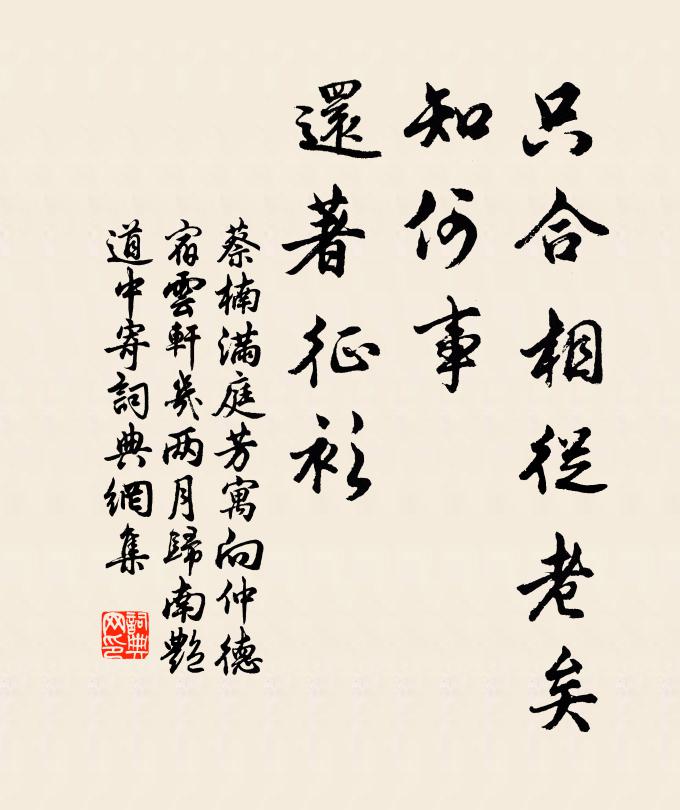 只合相從老矣
知何事
還著征衫
蔡楠滿庭芳寓向仲德
宿雲軒幾两月歸南艷
道中寄詞典網集
詞典网印